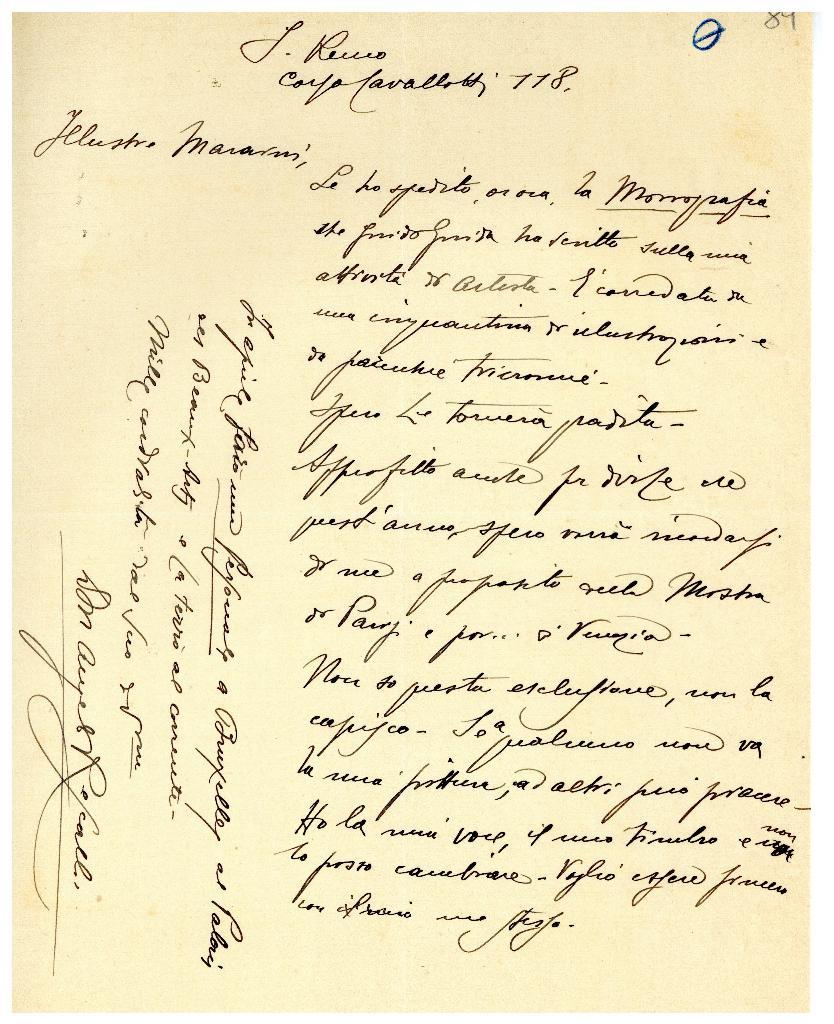 84
S. Remo
Corso Cavallotti 118.
Illustre Maraini,
Le ho spedito, ora, la Monografia
che Guido Guida ha scritto sulla mia
attività di Artista - È corredata da
una cinquantina di illustrazioni e
da parecchie tricromie -
Spero Le tornerà gradita -
Approfitto anche per dirLe che
quest'anno, spero vorrà ricordarsi
di me a proposito della Mostra
di Parigi e poi... di Venezia -
Non so questa esclusione, non la
capisco - Se a qualcuno non va
la mia pittura, ad altri può piacere -
Ho la mia voce, il mio timbro e non
lo posso cambiare - Voglio essere sincero
con me stesso.
In aprile farò una personale a Bruxelles al Palais
des Beaux-Arts e La terrò al corrente -
Mille cordialità dal Suo
Dom Angelo Rescalli.